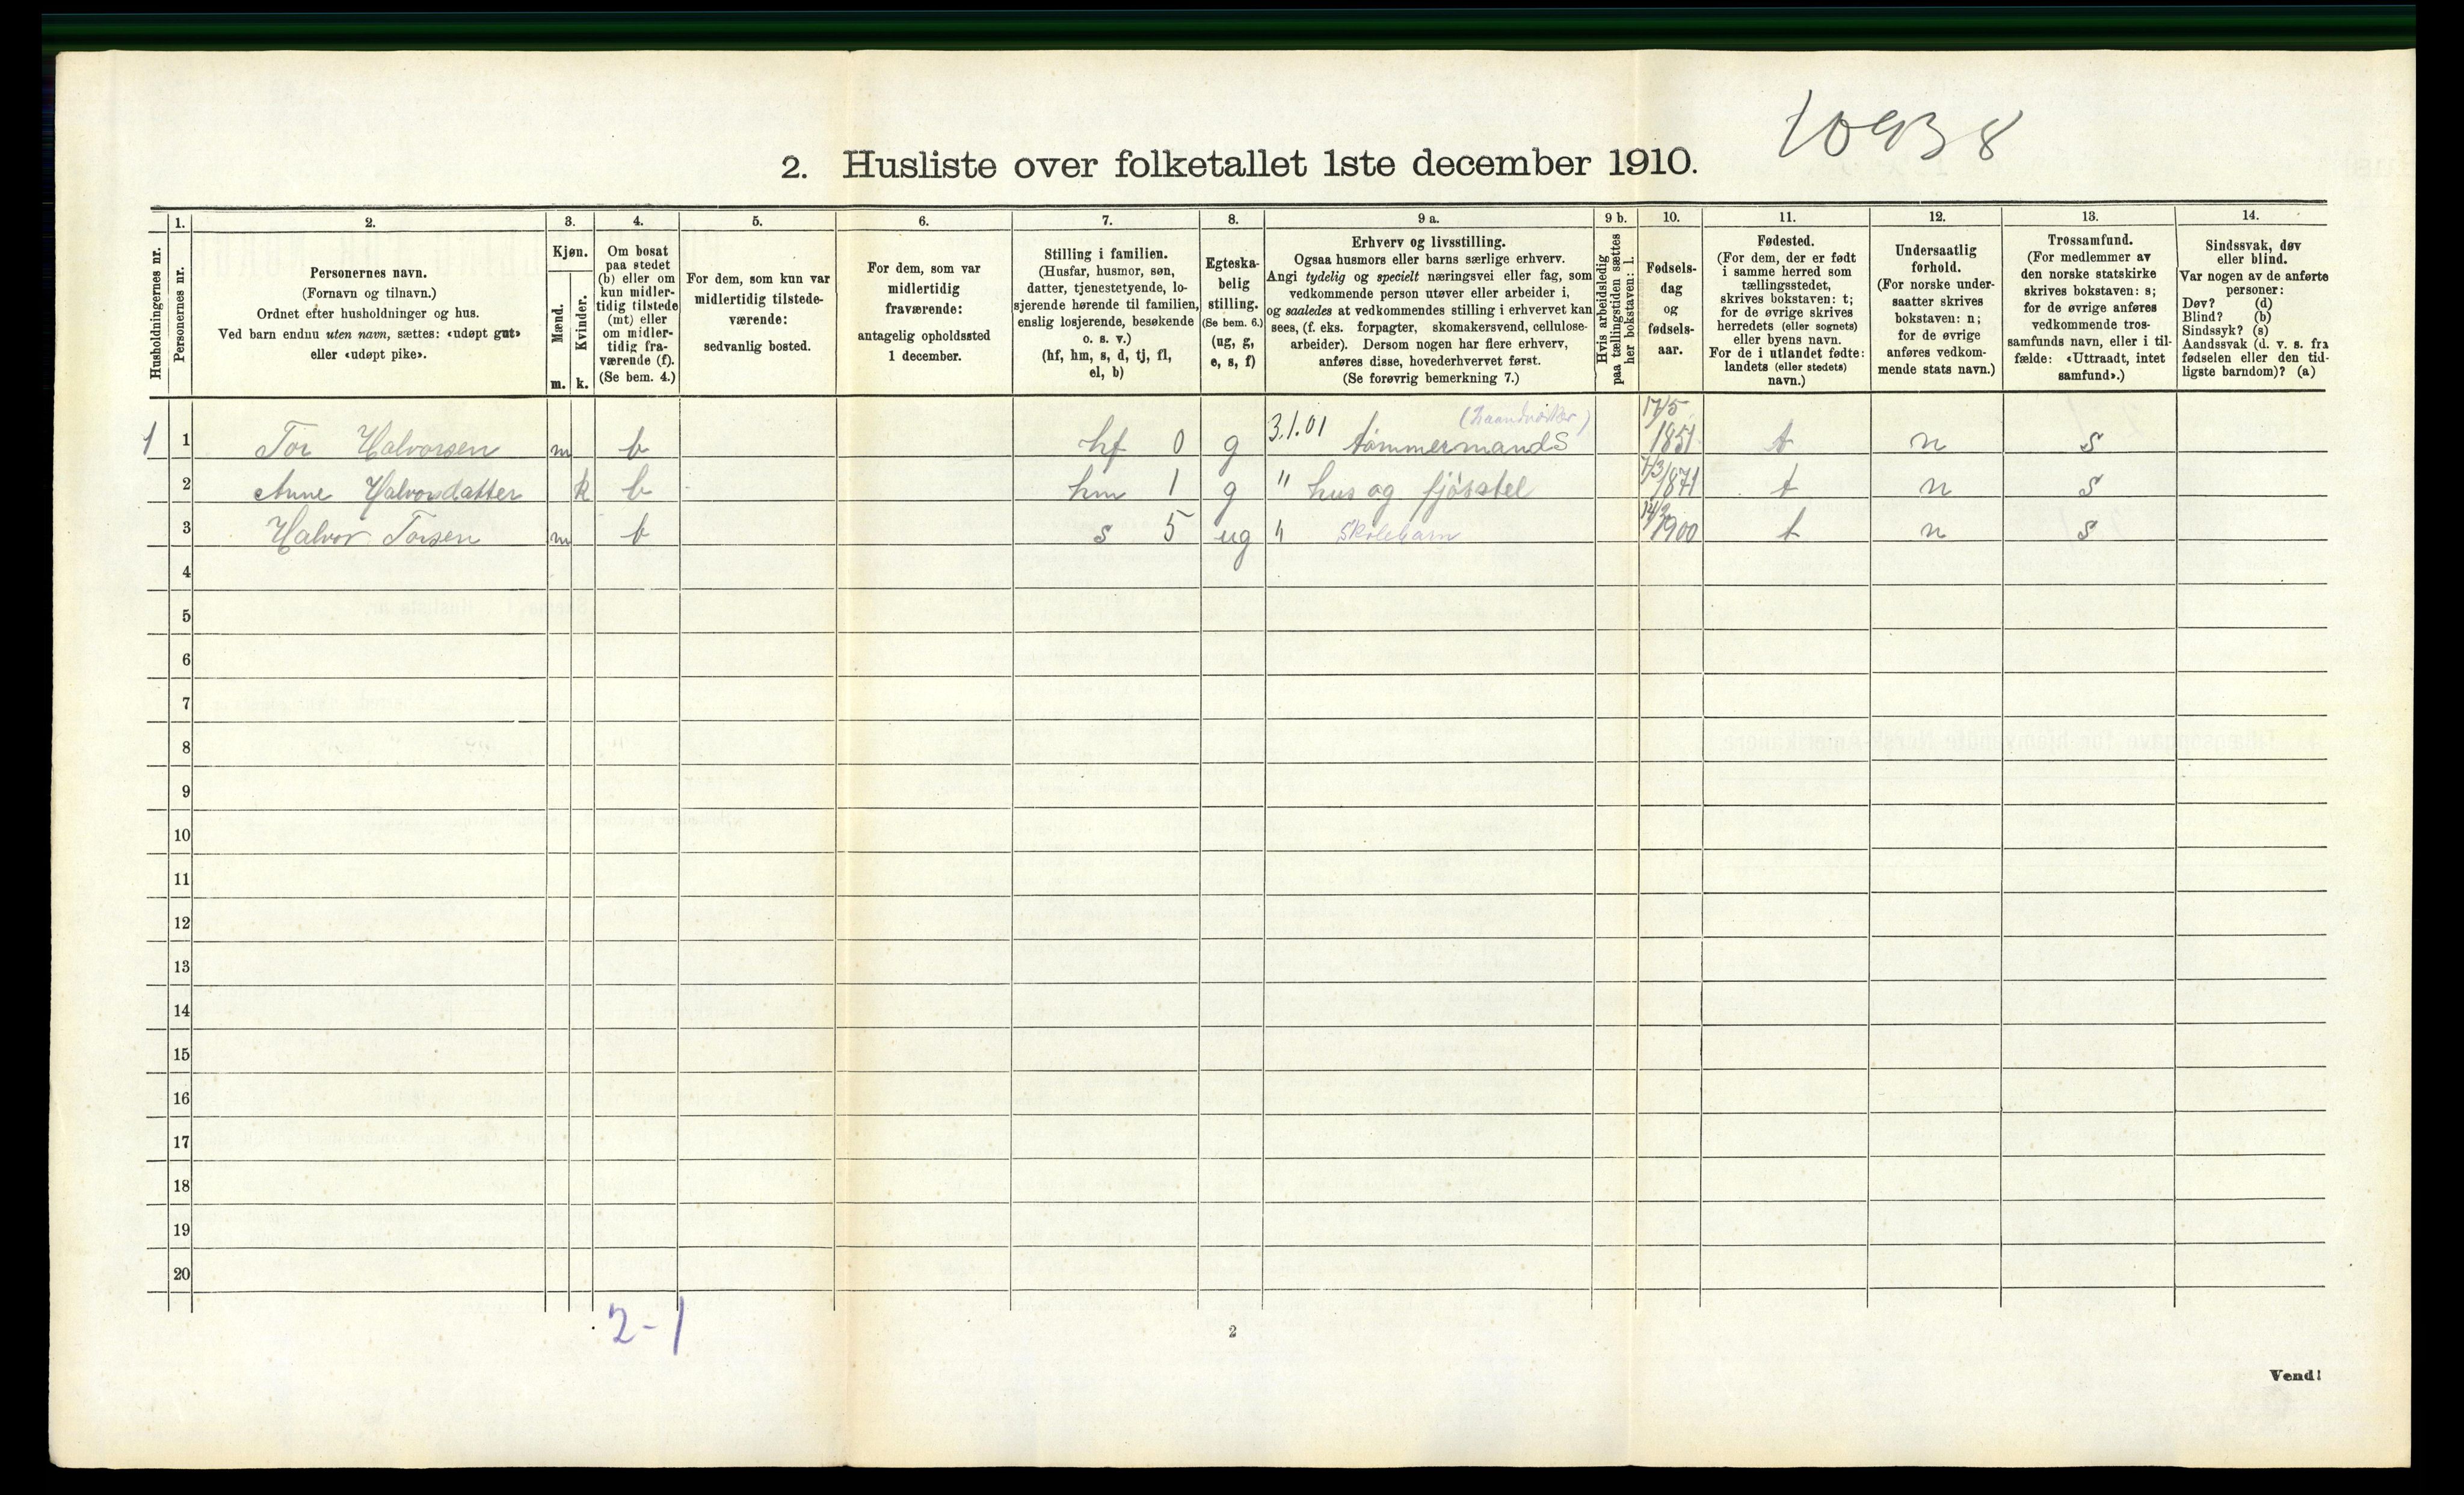 10938
2. Husliste over folketallet 1ste december 1910.
Husholdningernes nr.
1.
Personernes nr.
2.
Personernes navn.
(Fornavn og tilnavn.)
Ordnet efter husholdninger og hus.
Ved barn endnu uten navn, sættes: «udøpt gut»
eller «udøpt pike».
3.
Kjøn.
Mænd.
Kvinder.
m. k.
4.
Om bosat
paa stedet
(b) eller om
kun midler-
tidig tilstede
(mt) eller
om midler-
tidig fra-
værende (f).
(Se bem. 4.)
5.
For dem, som kun var
midlertidig tilstede-
værende:
sedvanlig bosted.
6.
For dem, som var
midlertidig
fraværende:
antagelig opholdssted
1 december.
7.
Stilling i familien.
(Husfar, husmor, søn,
datter, tjenestetyende, lo-
sjerende hørende til familien,
enslig losjerende, besøkende
o. s. v.)
(hf, hm, s, d, tj, fl,
el, b)
8.
Egteska-
belig
stilling.
(Se bem. 6.)
(ug, g,
e, s, f)
9 a.
Erhverv og livsstilling.
Ogsaa husmors eller barns særlige erhverv.
Angi tydelig og specielt næringsvei eller fag, som
vedkommende person utøver eller arbeider i,
og saaledes at vedkommendes stilling i erhvervet kan
sees, (f. eks. forpagter, skomakersvend, cellulose-
arbeider). Dersom nogen har flere erhverv,
anføres disse, hovederhvervet først.
(Se forøvrig bemerkning 7.)
9 b.
Hvis arbeidsledig
paa tællingstiden sættes
her bokstaven: l.
10.
Fødsels-
dag
og
fødsels-
aar.
11.
Fødested.
(For dem, der er født
i samme herred som
tællingsstedet,
skrives bokstaven: t;
for de øvrige skrives
herredets (eller sognets)
eller byens navn.
For de i utlandet fødte:
landets (eller stedets)
navn.)
12.
Undersaatlig
forhold.
(For norske under-
saatter skrives
bokstaven: n;
for de øvrige
anføres vedkom-
mende stats navn.)
13.
Trossamfund.
(For medlemmer av
den norske statskirke
skrives bokstaven: s;
for de øvrige anføres
vedkommende tros-
samfunds navn, eller i til-
fælde: «Uttraadt, intet
samfund».)
14.
Sindssvak, døv
eller blind.
Var nogen av de anførte
personer:
Døv? (d)
Blind? (b)
Sindssyk? (s)
Aandssvak (d. v. s. fra
fødselen eller den tid-
ligste barndom)? (a)
1 1 Tor Halvorsen m b hf 0 g 3.1.01 tømmermands (haandverker) 17/5 1851 t n s
2 Anne Halvorsdatter k b hm 1 g " hus og fjøsstel 7/3 1871 t n s
3 Halvor Torsen m b s 5 ug " Skolebarn 1900 t n s
4
5
6
7
8
9
10
11
12
13
14
15
16
17
18
19
20
2-1
2
Vend!